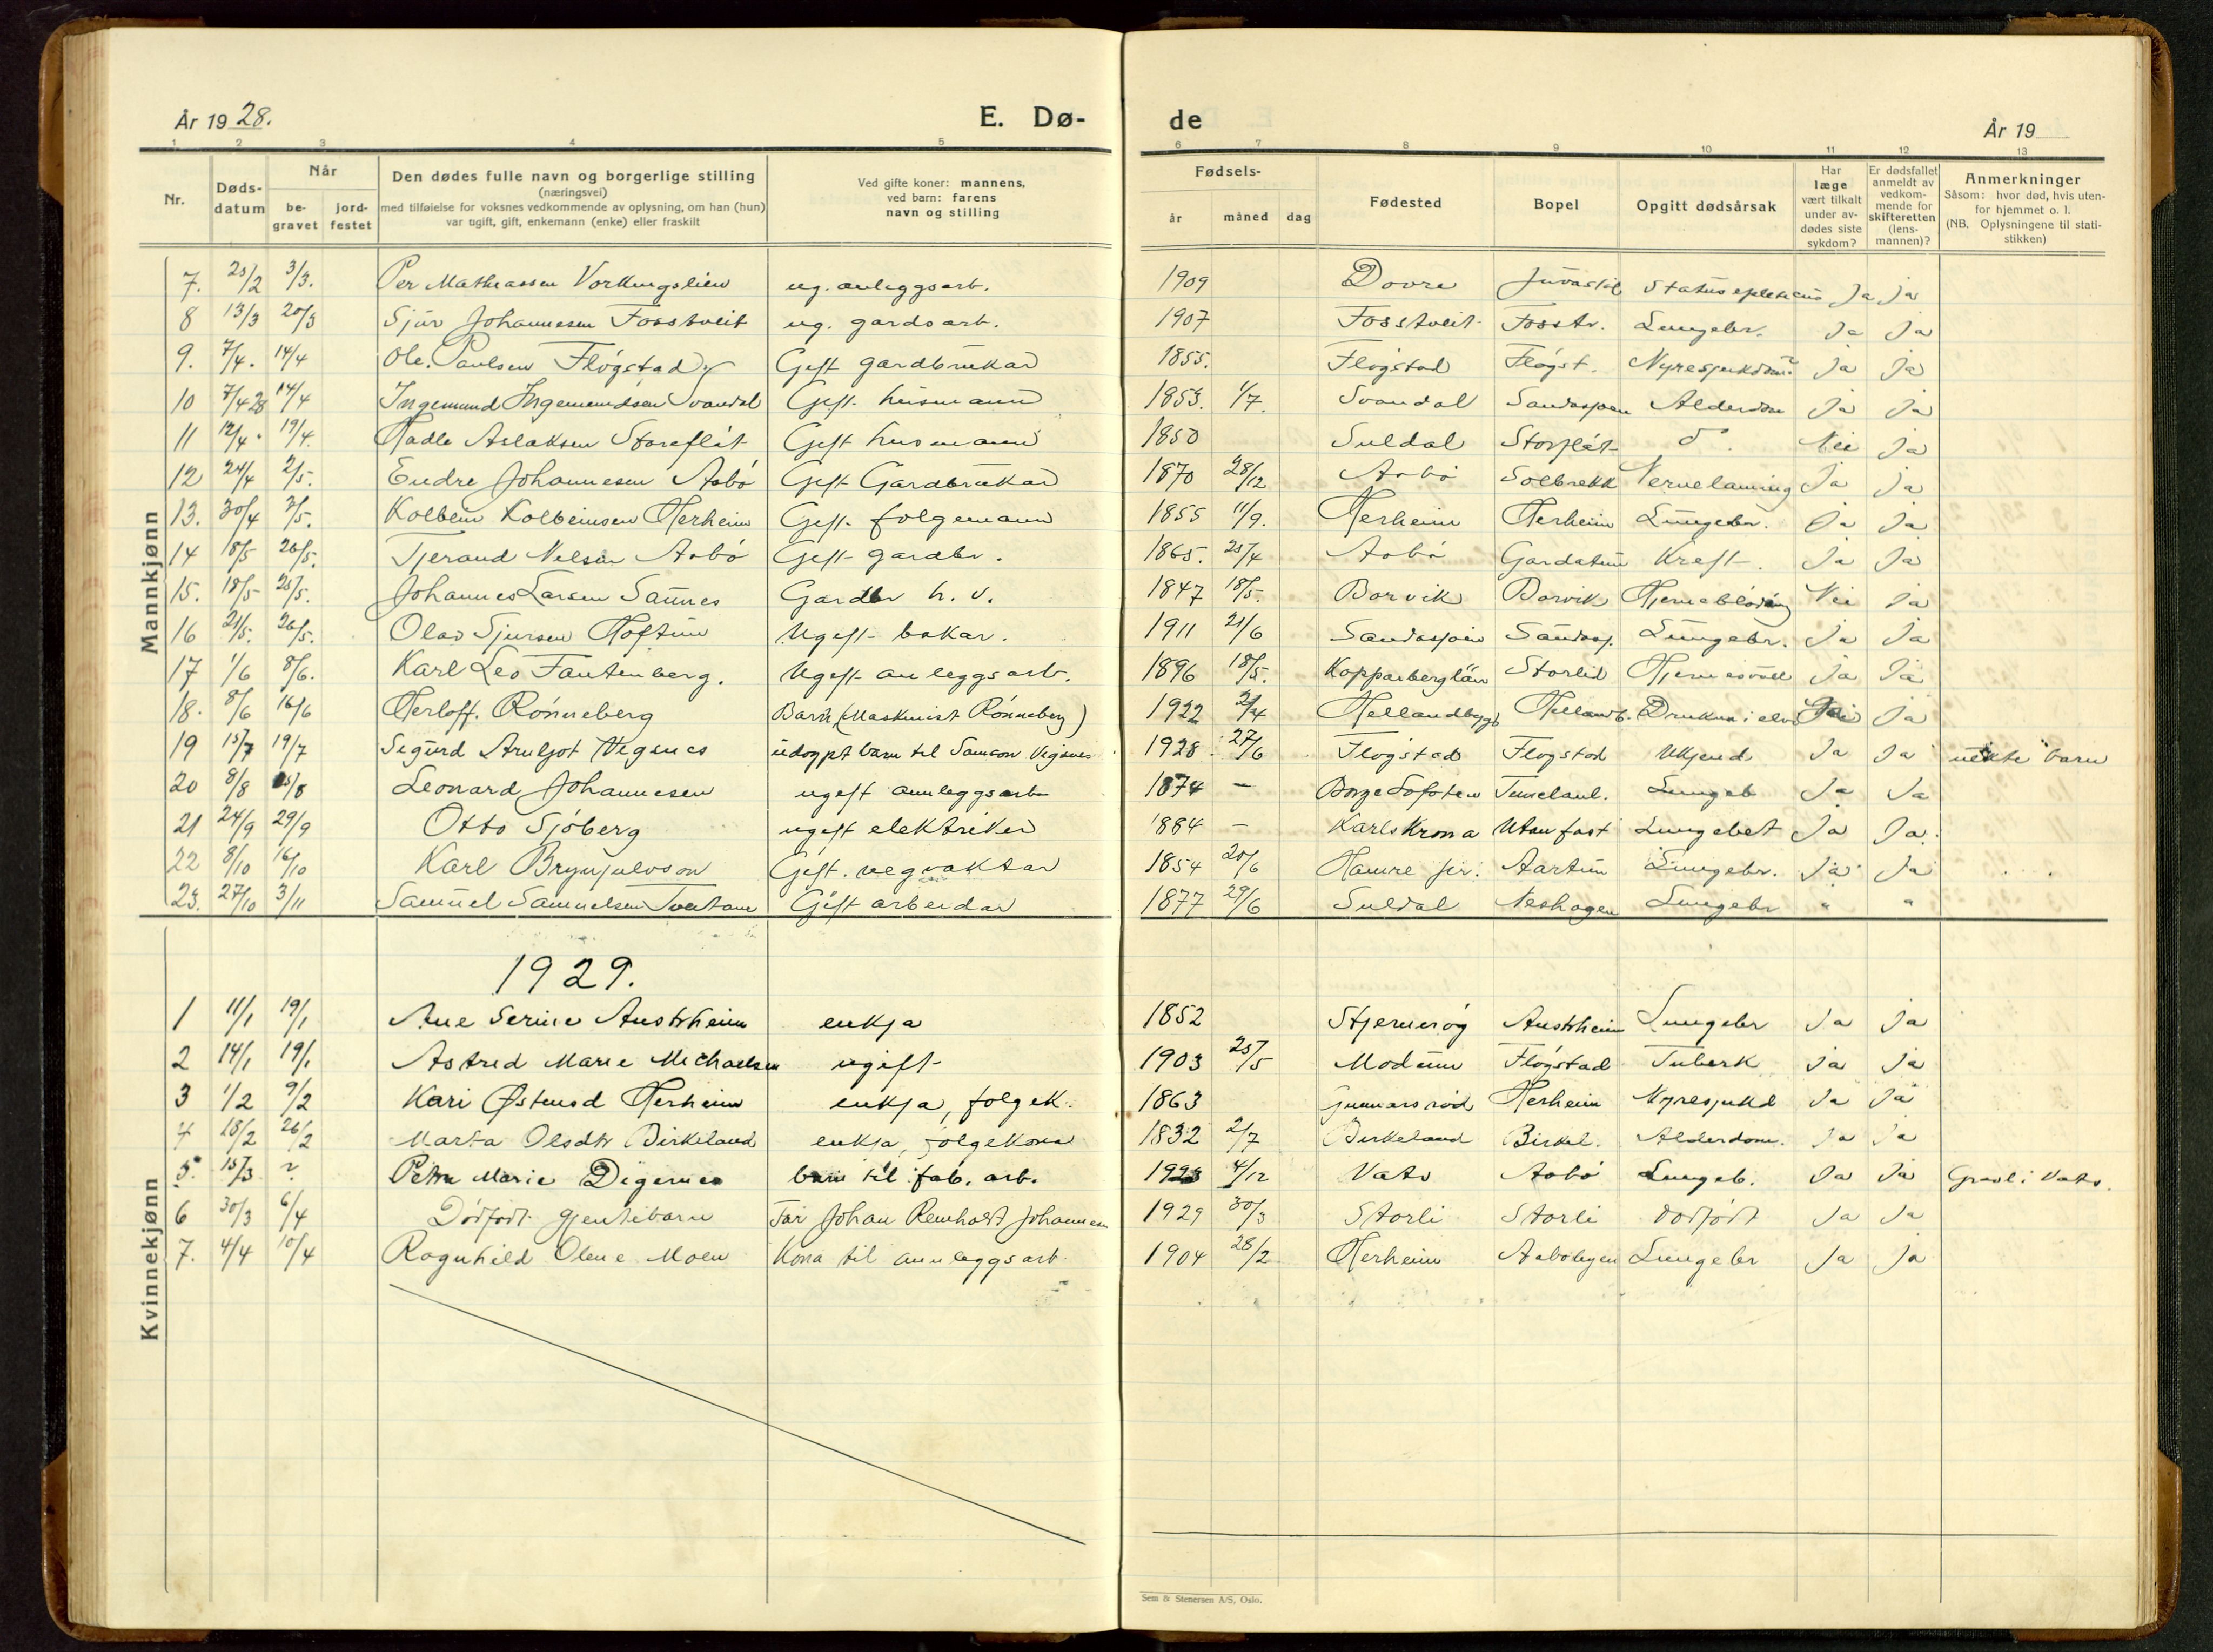 År 1928. E. Dø- de År 19
1 2 3 4 5 6 7 8 9 10 11 12 13
Nr. Døds-datum Når be-gravet jord-festet Den dødes fulle navn og borgerlige stilling (næringsvei) med tilføielse for voksnes vedkommende av oplysning, om han (hun) var ugift, gift, enkemann (enke) eller fraskilt Ved gifte koner: mannens, ved barn: farens navn og stilling Fødsels- år måned dag Fødested Bopel Opgitt dødsårsak Har læge vært tilkalt under av-dødes siste sykdom? Er dødsfallet anmeldt av vedkom-mende for skifteretten (lens-mannen)? Anmerkninger Såsom: hvor død, hvis uten-for hjemmet o. l. (NB. Oplysningene til stati-stikken)
Mannkjønn
7. 25/2 3/3. Per Mathiassen Vorkingslien ug. anleggsarb. 1909 Dovre Juvastøl Status epilepticus Ja Ja
8 13/3 20/3 Sjur Johannesen Fosstveit ug. gardsarb. 1907 Fosstveit Fosstv. Lungebr. Ja Ja
9. 7/4. 14/4 Ole Paulsen Fløgstad Gift gardbrukar 1855. Fløgstad Fløgst. Nyresjukdom? Ja Ja
10 7/4 28 14/4 Ingemund Ingemundsen Svandal Gift husmann 1853. 1/7. Svandal Sandasjøen Alderdom Ja Ja
11 12/4. 19/4. Hadle Aslaksen Storeflåt Gift husmann 1850 Suldal Storflåt Nei Ja
12 24/4 2/5. Endre Johannesen Aabø Gift Gardbrukar 1870 28/12 Aabø Solbrekk Nervelaming Ja Ja
13. 30/4 3/5. Kolbein Kolbeinsen Herheim Gift folgemann 1855 11/9. Herheim Herheim Lungebr. Ja Ja
14 18/5 26/5. Tjerand Nelsen Aabø Gift gardbr. 1865. 25/4 Aabø Gardatun Kreft. Ja Ja
15. 18/5 25/5. Johannes Larsen Saunes Gardbr h. v. 1847 18/5. Barvik Barvik Hjerneblødning Nei Ja
16 21/5. 26/5. Olav Sjursen Hoftun Ugift bakar. 1911 21/6 Sandasjøen Sandasj. Lungebr. Ja Ja
17 1/6 8/6. Karl Leo Fantenberg. Ugift anleggsarb. 1896 18/5. Kopparberglän Storlid Hjernesvull Ja Ja
18. 8/6 16/6 Herloff. Rønneberg Barn (Maskinist Rønneberg) 1922 2/4 Hellandbygd Helland b. Druknu i elv Ja
19 15/7 19/7 Sigurd Arnljot Vegsnes udøypt barn til Samson Vigsnes 1928. 27/6 Fløgstad Flogstad Ukjend Ja Ja uekte barn
20 8/8 15/8 Leonard Johannesen ugift annleggsarb 1874 – Borge Lofoten Tunelanl. Lungeb Ja Ja
21 24/9 29/9 Otto Sjöberg ugift elektriker 1884 – Karlskrona Utan fast Lungebet Ja Ja.
22 8/10 16/10 Karl Brynjulvson Gift. vegvaktar 1854 20/6 Hamre pr. Aartun Lungebr. Ja Ja
23. 27/10 3/11 Samuel Samuelsen Tveitane Gift arbeidar 1877 29/6 Suldal Neshagen Lungebr " "
1929.
Kvinnekjønn
1 11/1 19/1 Ane Serine Austrheim enkja 1852 Stjernerøy Austrheim Lungebr Ja Ja
2 14/1 19/1 Astrid Marie Michaelsen ugift 1903 25/5 Modum Fløgstad Tuberk Ja Ja
3 1/2 9/2 Kari Østensd Herheim enkja, folgek. 1863 Herheim Nyresjukd Ja Ja
4 18/2 26/2 Marta Olsdtr Birkeland enkja, folgekona 1832 2/7 Birkeland Birkel. Alderdom. Ja Ja
5. 15/3 ? Petra Marie Digernes barn til fab. arb. 1923 4/12 Vats Aabø Lungeb. Ja Ja Gravl. i Vats.
6 30/3 6/4 Dødfødt gjentebarn Far Johan Reinholdt Johannesen 1929 30/3 Storli Storli dødfødt Ja Ja
7. 4/4 10/4 Ragnhild Oline Moen Kona til annleggsarb. 1904 28/2 Herheim Aabøbyen Lungebr Ja Ja
Sem & Stenersen A/S, Oslo.